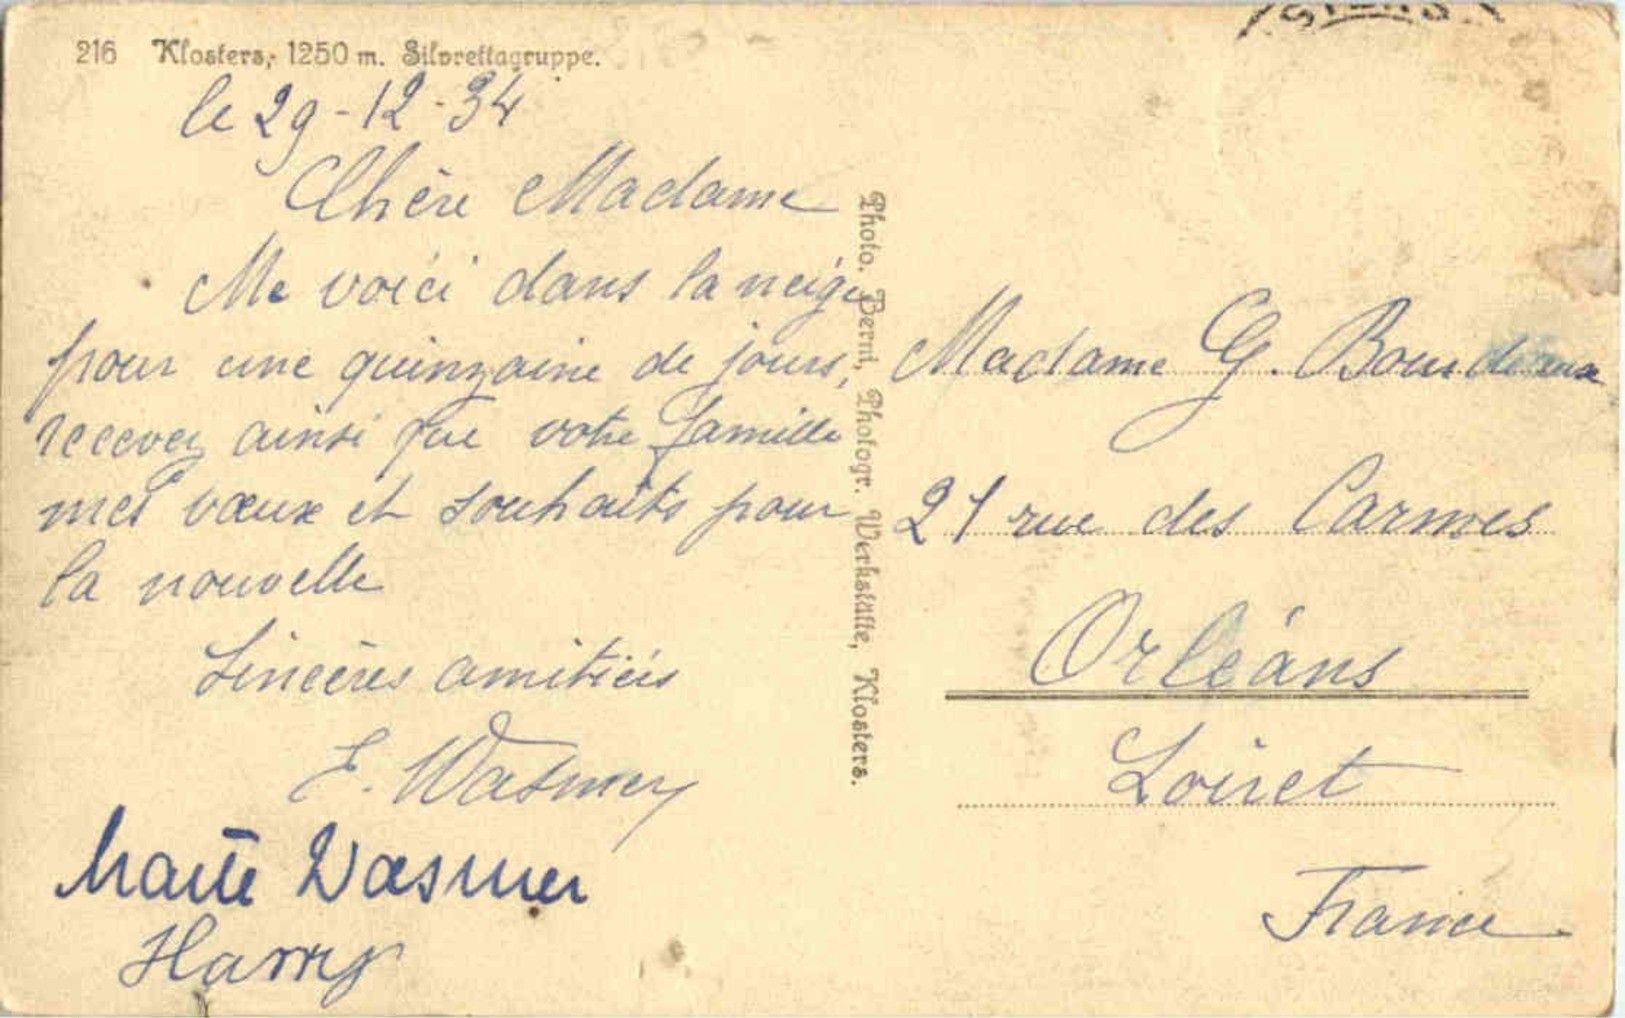 216 Klosters, 1250 m. Silvrettagruppe.
le 29-12-34
Chère Madame
Me voici dans la neige
pour une quinzaine de jours,
recevez ainsi que votre famille
mes vœux et souhaits pour
la nouvelle
Sincères amitiés
E. Wasmer
Wasmer
Harry
Photo. Berni, Photogr. Werkstätte, Klosters.
Madame G.
21 rue des Carmes
Orléans
Loiret
France